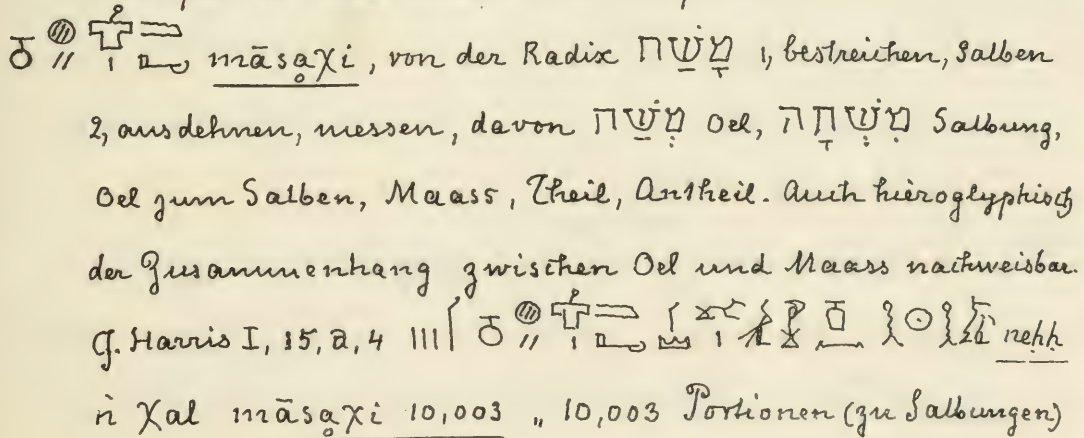 māsạχi, von der Radix מָשַׁח 1, bestreichen, salben
2, ausdehnen, messen, davon מְשַׁח Oel, מִשְׁחָה Salbung,
Oel zum Salben, Maass, Theil, Antheil. Auch hieroglyphisch
der Zusammenhang zwischen Oel und Maass nachweisbar.
Harris I, 15, a, 4 neḥḥ
n χal māsạχi 10,003 „ 10,003 Portionen (zu Salbungen)